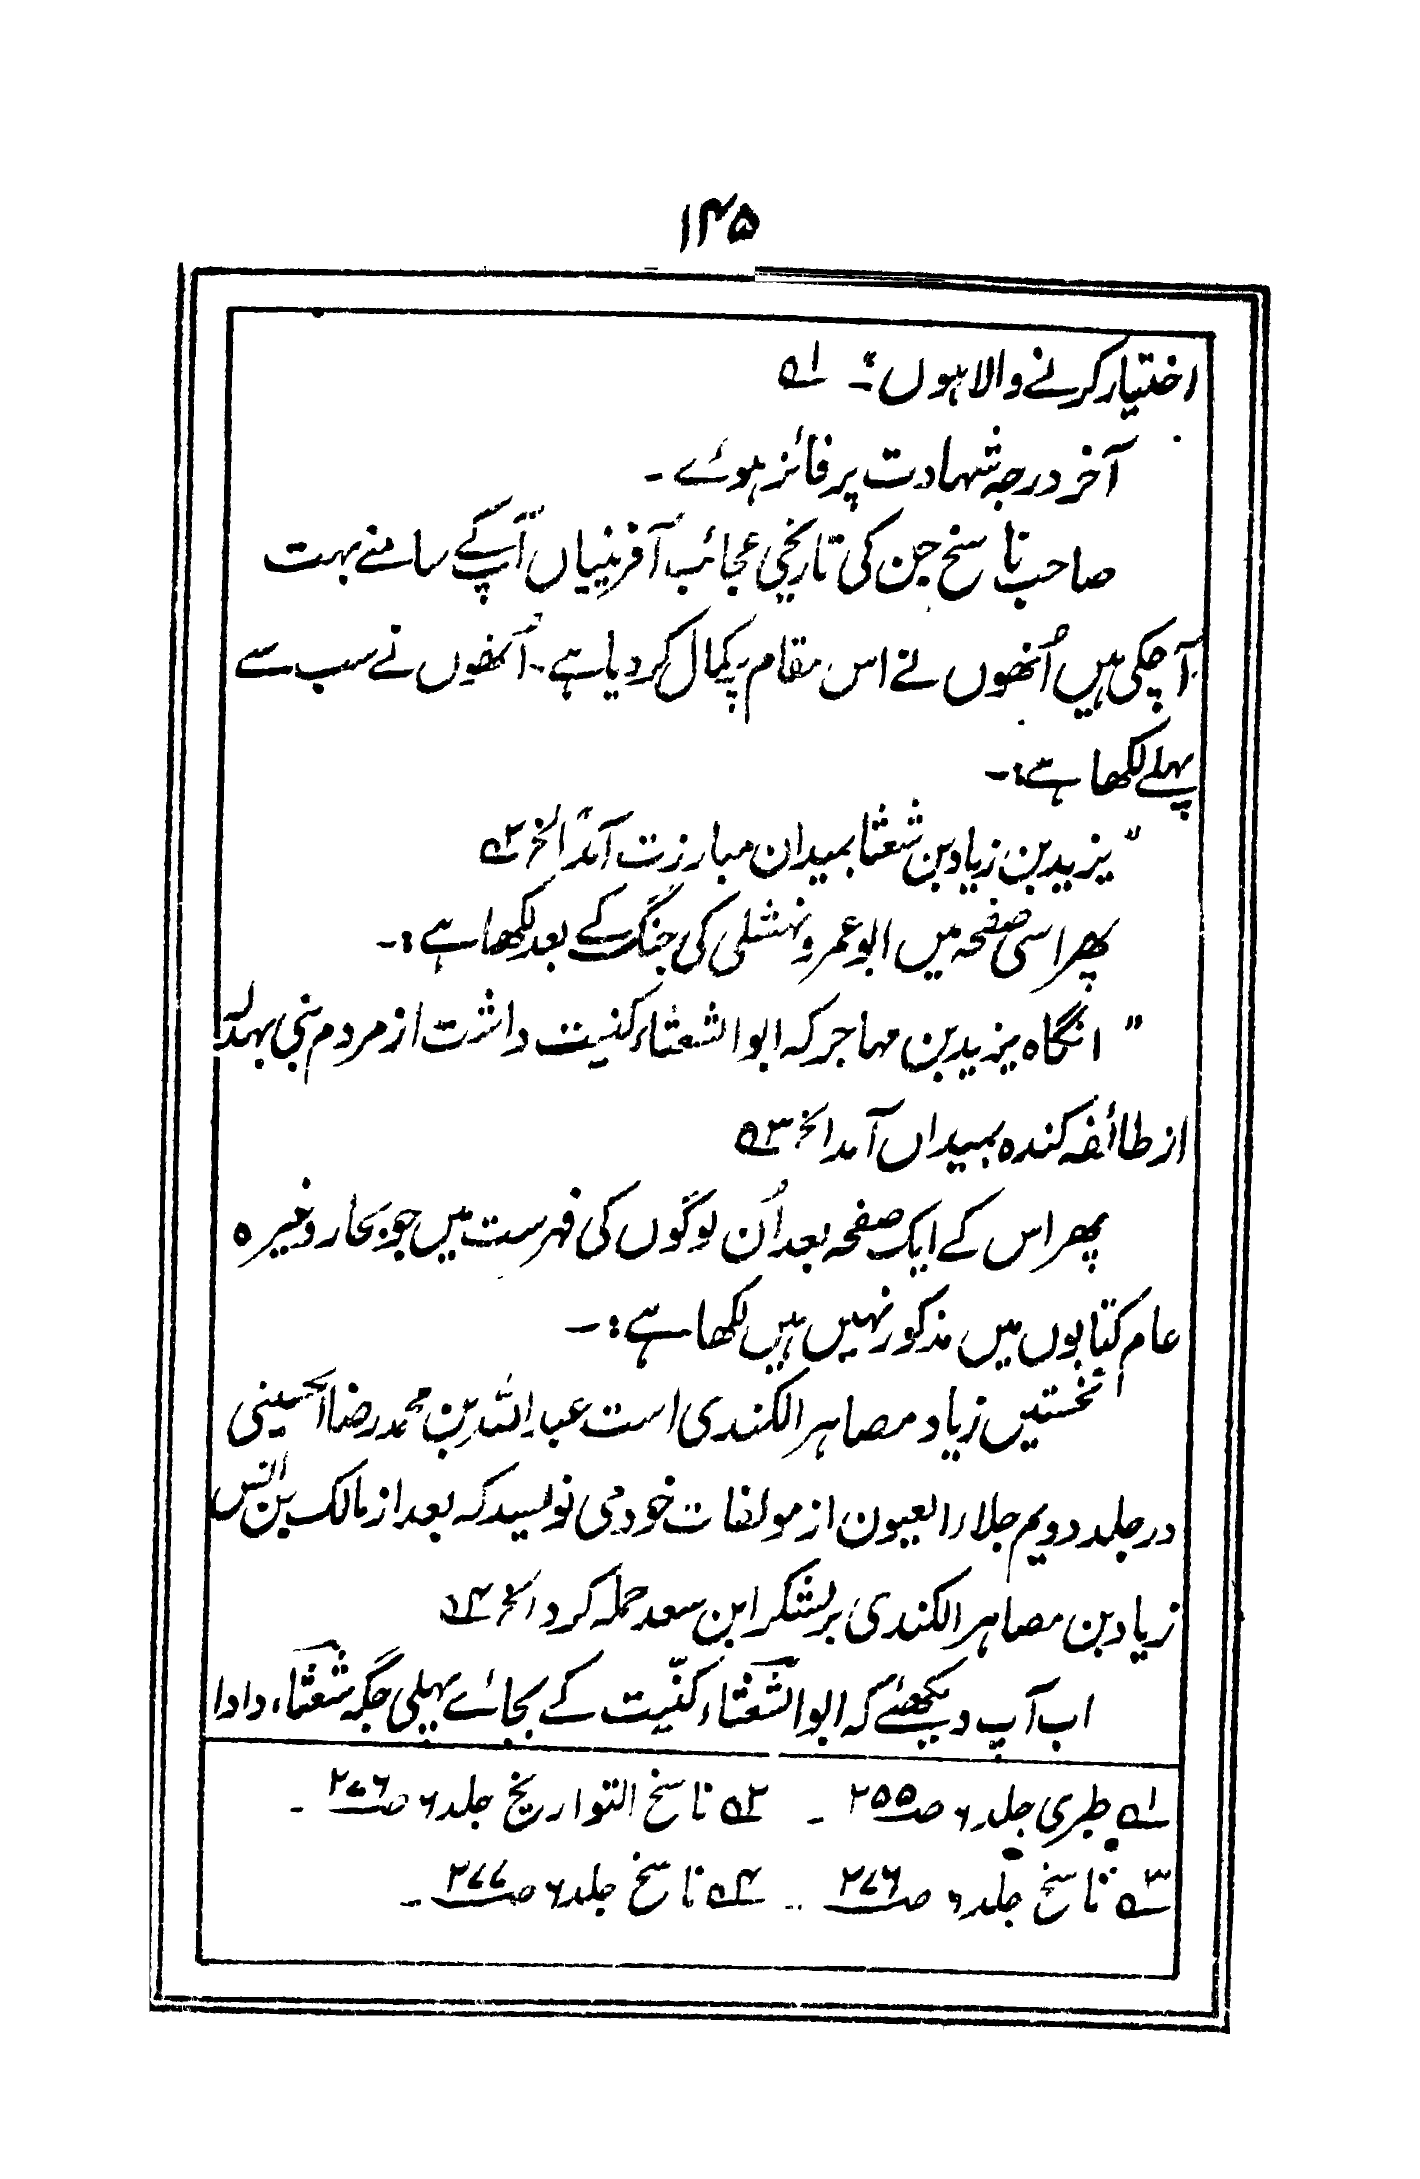 ۱۴۵
اختیار کرنے والا ہوں"۔ ۱ھ
آخر درجہ شہادت پر فائز ہوئے ۔
صاحب ناسخ جن کی تاریخی عجائب آفرینیاں آپ کے سامنے بہت
آ چکی ہیں اُنھوں نے اس مقام پر کمال کر دیا ہے۔ اُنھوں نے سب سے
پہلے لکھا ہے:۔
"یزید بن زیاد بن شعثا بمیدان مبارزت آمد الخ ۲ھ
پھر اسی صفحہ میں ابو عمرو نہشلی کی جنگ کے بعد لکھا ہے:۔
" انگاہ یزید بن مہاجر کہ ابوالشعثاء کنیت داشت از مردم بنی بہدلہ
از طائفہ کندہ بمیداں آمد الخ ۳ھ
پھر اس کے ایک صفحہ بعد اُن لوگوں کی فہرست میں جو بحار وغیرہ
عام کتابوں میں مذکور نہیں ہیں لکھا ہے:۔
"نخستیں زیاد مصاہر الکندی است عبداللہ بن محمد رضا الحسینی
در جلد دویم جلاء العیون از مولفات خود می نویسد کہ بعد از مالک بن انس
زیاد بن مصاہر الکندی بر لشکر ابن سعد حملہ کرد الخ ۴ھ
اب آپ دیکھئے کہ ابوالشعثاء کنیت کے بجائے پہلی جگہ شعثاء، دادا
۱ھ طبری جلد ۶ ص ۲۵۵ ۔ ۲ھ ناسخ التواریخ جلد ۶ ص ۲۷۶ ۔
۳ھ ناسخ جلد ۶ ص ۲۷۶ ۔ ۴ھ ناسخ جلد ۶ ص ۲۷۷ ۔